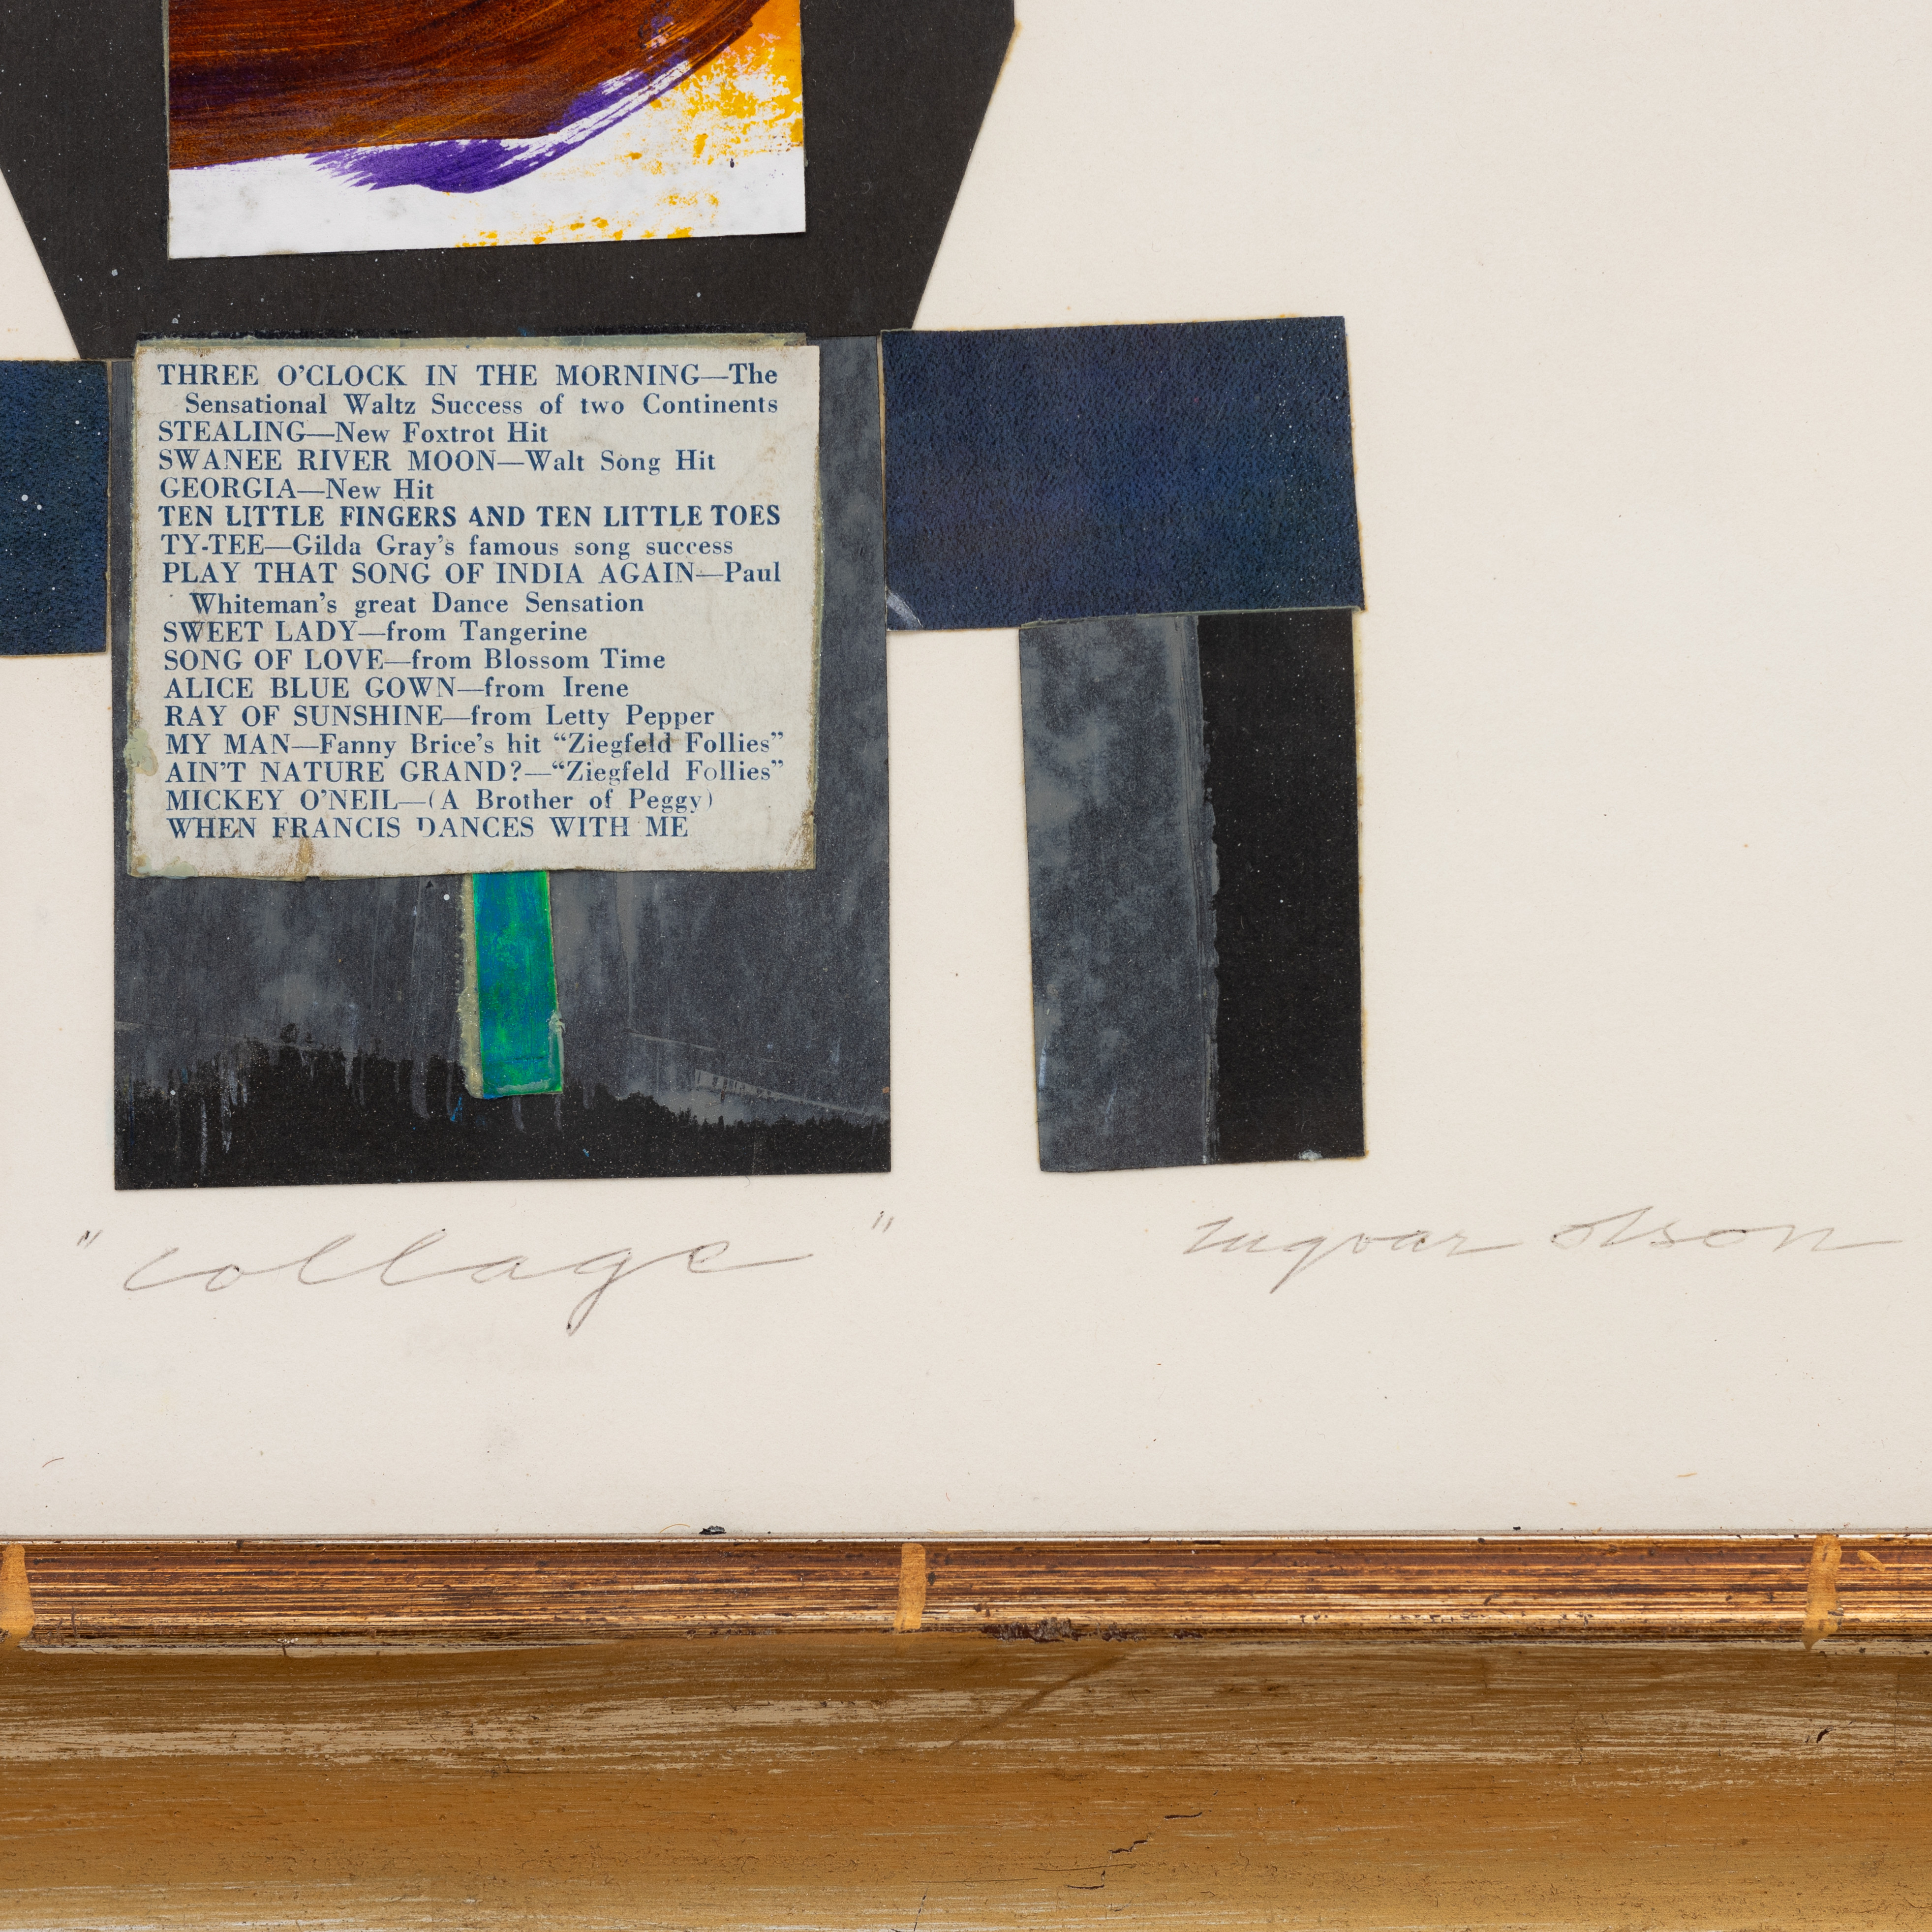 THREE O'CLOCK IN THE MORNING—The
Sensational Waltz Success of two Continents
STEALING—New Foxtrot Hit
SWANEE RIVER MOON—Walt Song Hit
GEORGIA—New Hit
TEN LITTLE FINGERS AND TEN LITTLE TOES
TY-TEE—Gilda Gray's famous song success
PLAY THAT SONG OF INDIA AGAIN—Paul
Whiteman's great Dance Sensation
SWEET LADY—from Tangerine
SONG OF LOVE—from Blossom Time
ALICE BLUE GOWN—from Irene
RAY OF SUNSHINE—from Letty Pepper
MY MAN—Fanny Brice's hit “Ziegfeld Follies”
AIN'T NATURE GRAND?—“Ziegfeld Follies”
MICKEY O'NEIL—(A Brother of Peggy)
WHEN FRANCIS DANCES WITH ME
"collage"
Ingvar Olson